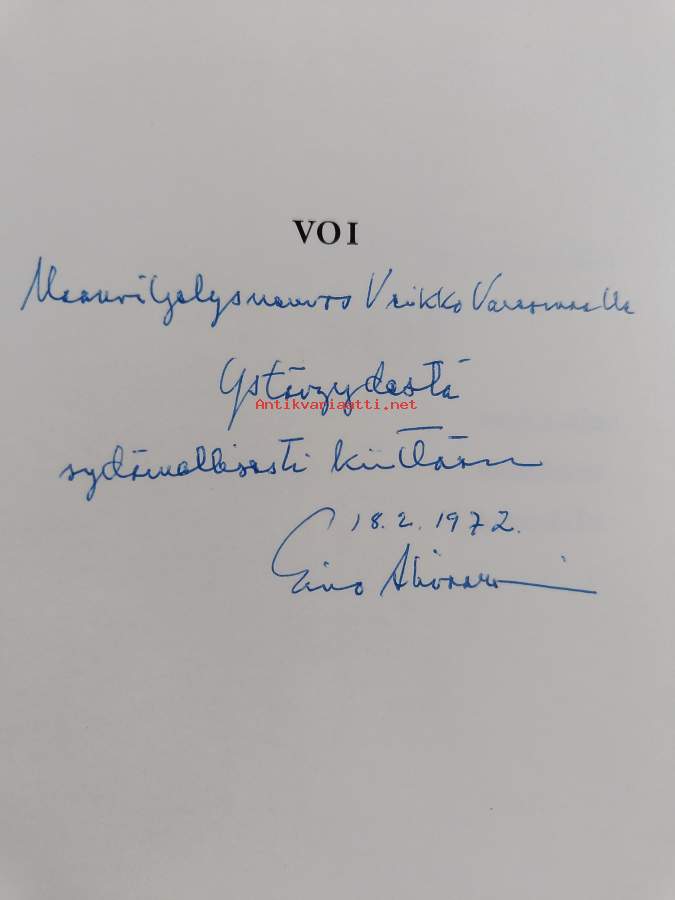 VOI
Maanviljelysneuvos Veikko
Ystävyydestä
Antikvariaatti.net
sydämellisesti kiittäen
18.2.1972.
Eino